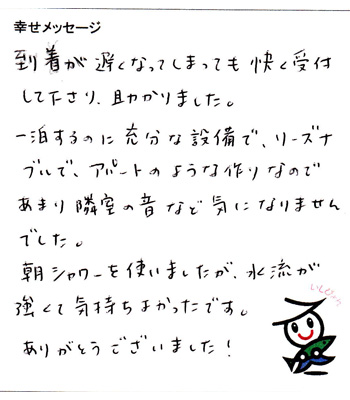 幸せメッセージ
到着が遅くなってしまっても快く受付
して下さり、助かりました。
一泊するのに充分な設備で、リーズナ
ブルで、アパートのような作りなので
あまり隣室の音など気になりません
でした。
朝シャワーを使いましたが、水流が
強くて気持ちよかったです。
ありがとうございました!